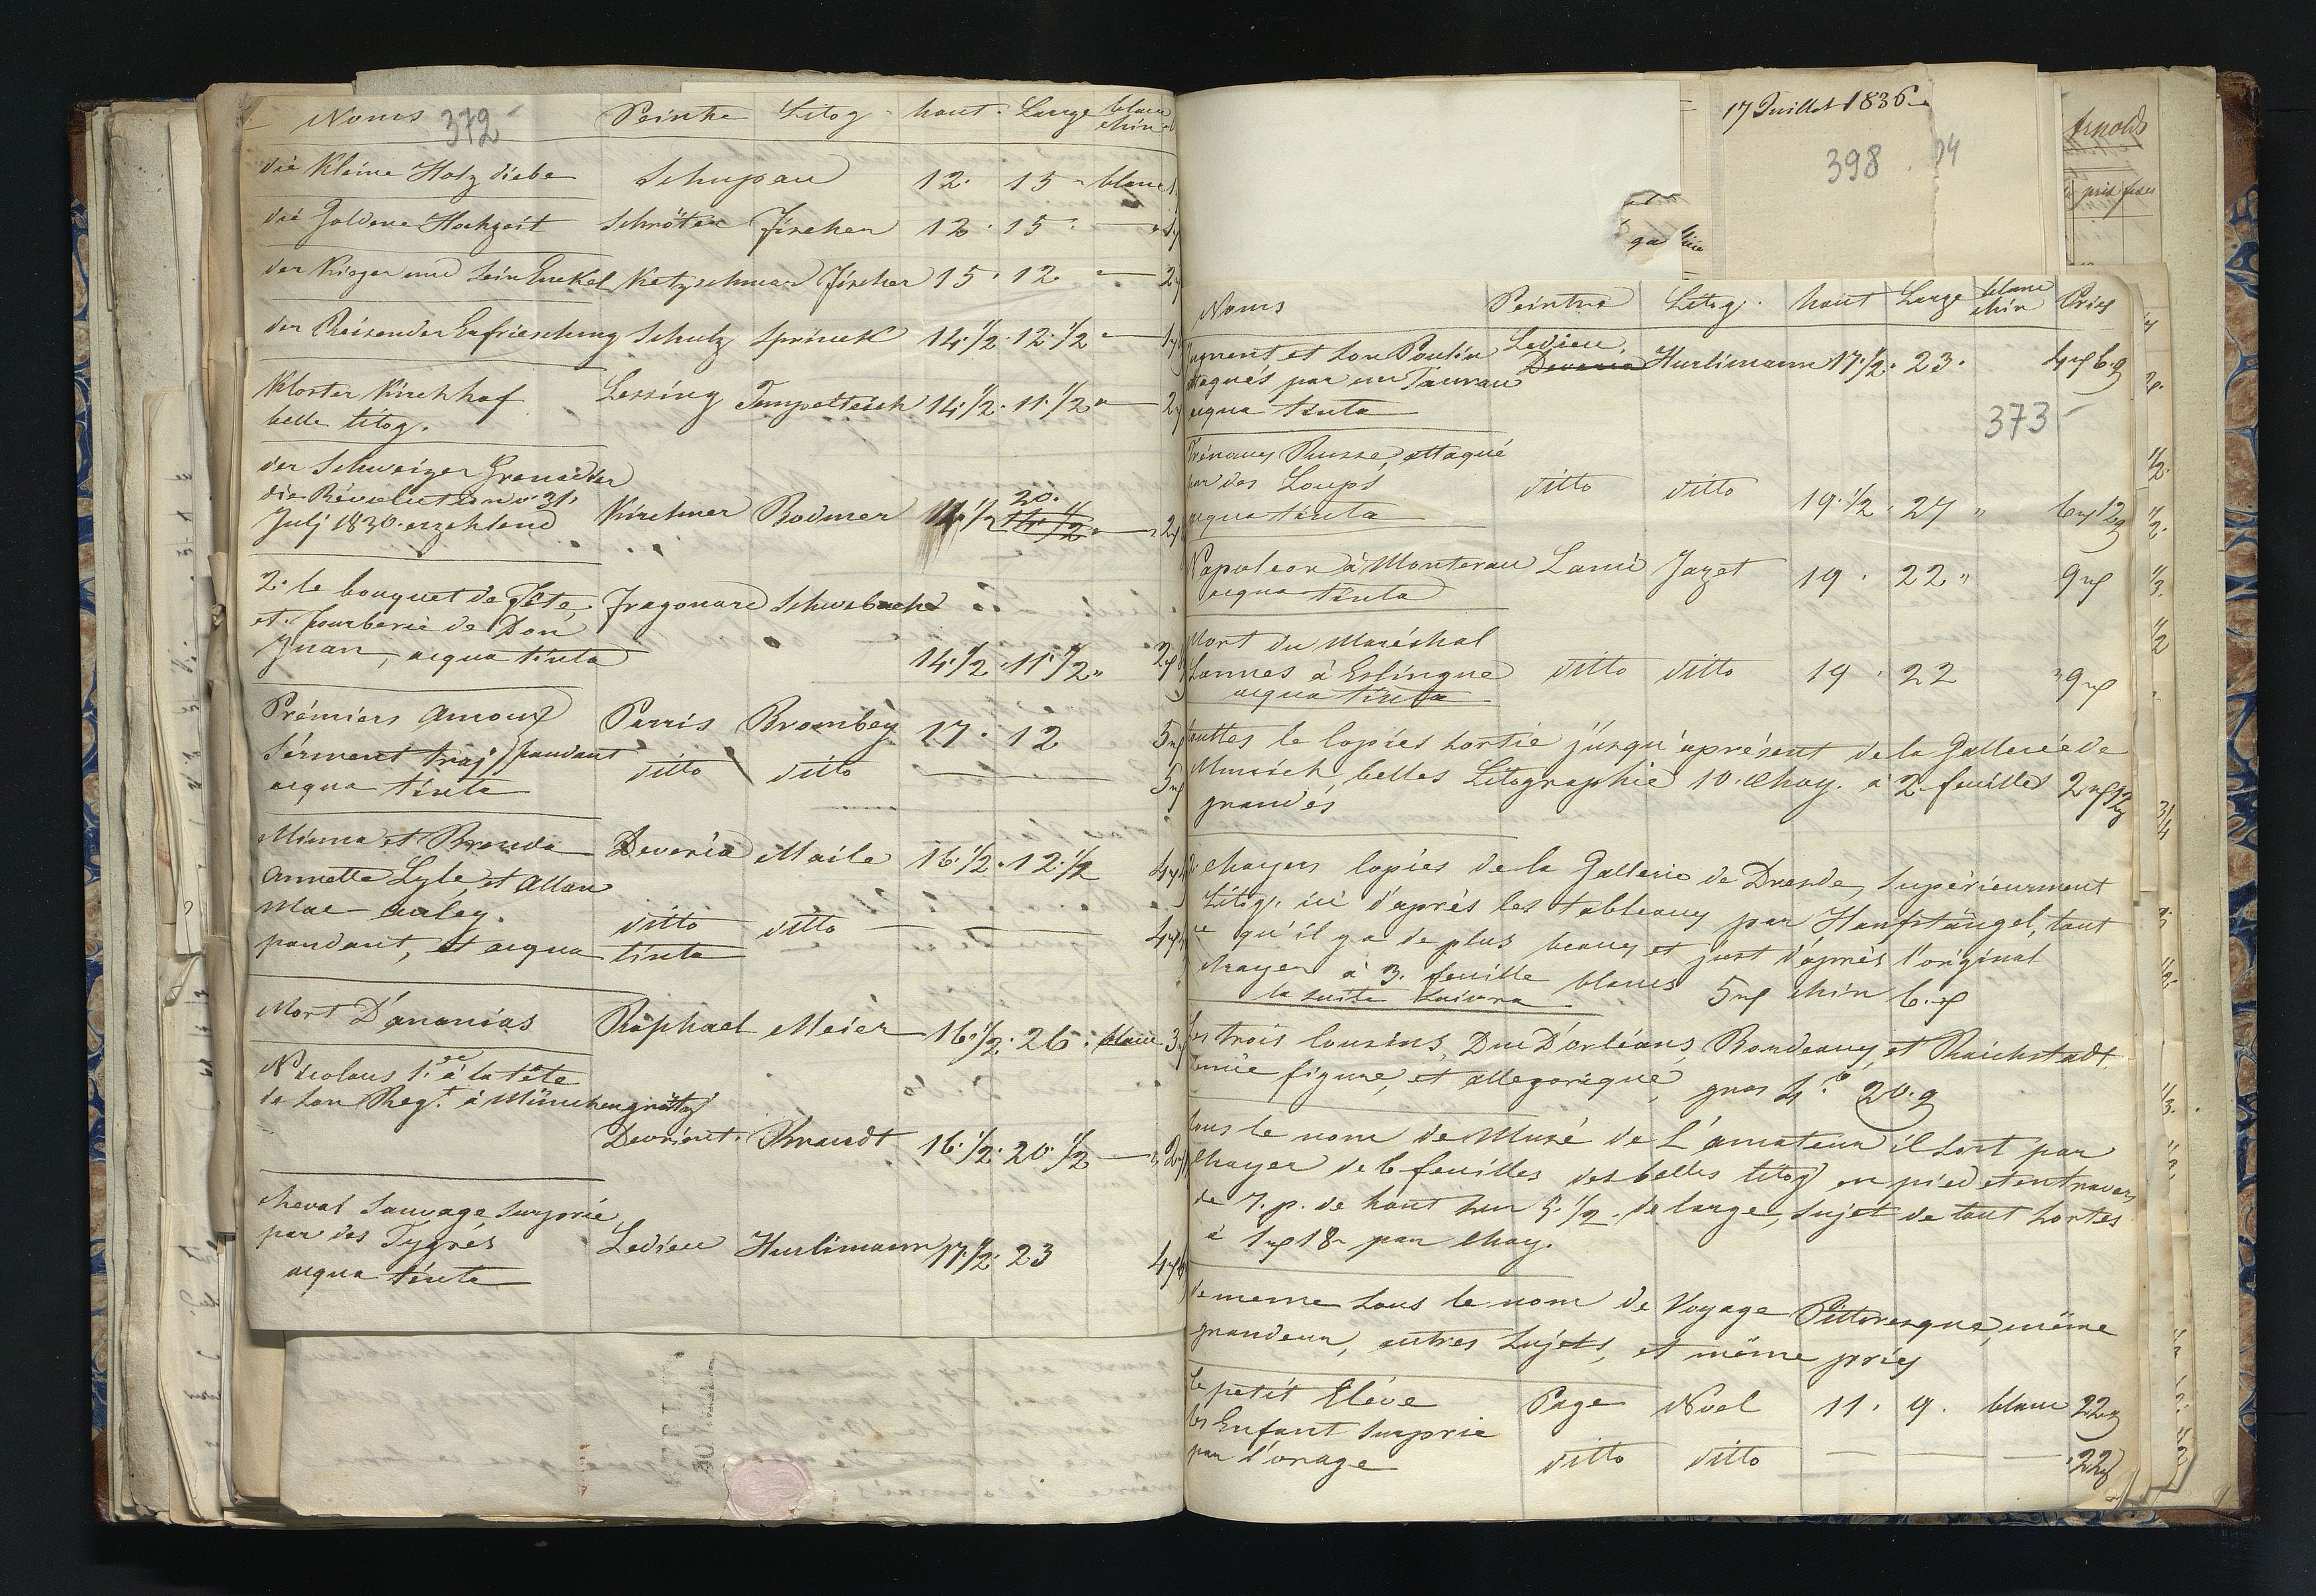 Noms 372 Peintre Litog. haut. Large blanc chin
die Kleine Holzdiebe 12. 15 - blanc
die Goldene Hochzeit Schröter Fischer 12. 15.
der Krieger und sein Enkel Ketzschmar Fischer 15. 12
der Reisender Erfrieschung Schulz Sprinck 14.1/2. 12.1/2
Kloster Kirchhof Lessing Tempeltei 14.1/2. 11.1/2
belle litog.
der Schweizer Grenadier
die Révolution v. 31.
Julj 1830. erzehlend Kirchner Bodmer 14 1/2 20.
2. le bouquet de Fête, Fragonard
et. fourberie de Don
Juan, acqua tinta 14.1/2. 11.1/2
Prémiers Amour Parris Brombey 17. 12
Sérment pendant ditto ditto
acqua tinta
Minna et Brenda Deveria Maile 16.1/2. 12.1/2
Annette Lyle, et Allan
Mac-auley. ditto ditto
pendant, et acqua tinta
Mort D'ananias Raphael Meier 16.1/2. 26. blanc 3
Nicolaus 1. à la tête
de son Reg.t à Münchengrätz
Devrient. Brandt 16.1/2. 20.1/2
Cheval Sauvage Surprié
par des Tygrés Ledieu Hurlimann 17.1/2. 23
acqua tinta
17 Juillet 1836
398
Arnold
Noms Peintre Litog. haut Large blanc chin Pries
et son Poulin Ledieu
attaqués par un Taurau Deveria Hurlimann 17.1/2. 23.
acqua tinta
373
Trénaux Russe, attaqué
par des Loups ditto ditto 19.1/2. 27
acqua tinta
Napoleon à Monterau Lami Jazet 19. 22
acqua tinta
Mort du Maréchal
Lannes à Eslingue ditto ditto 19. 22
acqua tinta
touttes le Copies sortie jusqu'aprésent de la Gallerie de
Munich, belles Litographie 10. Chay. à 2. feuilles
grandés
chayers Copies de la Gallerie de Dresde, Supérieurment
Litog. ici d'après les tableaux par Hanfstängel, tout
ce qu'il y a de plus beaux et just d'après l'original
Chayer à 3. feuille blancs 5 chin 6.
la suite suivra
les trois Cousins, Duc D'orléans, Bordeaux, et Reichstadt,
figure, et allegorique, gros 4.to 20.g
sous le nom de Musé de L'amateur il sort par
Chayer de 6 feuilles des belles litog en pied et en travers
de 7. p. de haut sur 5.1/2. de large, Sujet de tout sortes
à 18 par Chay.
de meme sous le nom de Voyage Pittoresque, même
grandeur, autres Sujets, et même priex
le petit Eléve Page Noel 11. 9. blanc 22g
les Enfant surprie
par l'orage ditto ditto 22g